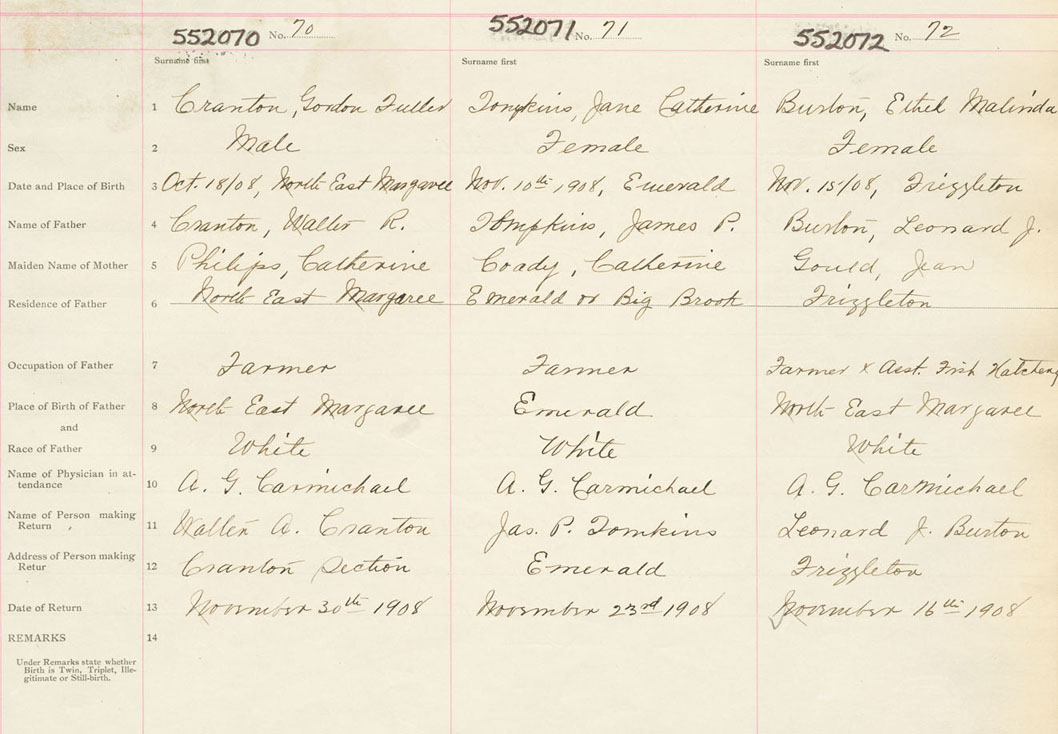 552070 No. 70 552071 No. 71 552072 No. 72
Surname first Surname first Surname first
Name 1 Cranton, Gordon Fuller Tompkins, Jane Catherine Burton, Ethel Malinda
Sex 2 Male Female Female
Date and Place of Birth 3 Oct. 18/08, North East Margaree Nov. 10th 1908, Emerald Nov. 15/08, Frizzleton
Name of Father 4 Cranton, Walter R. Tompkins, James P. Burton, Leonard J.
Maiden Name of Mother 5 Philips, Catherine Coady, Catherine Gould, Jean
Residence of Father 6 North East Margaree Emerald or Big Brook Frizzleton
Occupation of Father 7 Farmer Farmer Farmer & Asst. Fish Hatchery
Place of Birth of Father 8 North East Margaree Emerald North East Margaree
and
Race of Father 9 White White White
Name of Physician in at-
tendance 10 A. G. Carmichael A. G. Carmichael A. G. Carmichael
Name of Person making
Return 11 Walter A. Cranton Jas. P. Tomkins Leonard J. Burton
Address of Person making
Retur 12 Cranton Section Emerald Frizzleton
Date of Return 13 November 30th 1908 November 23rd 1908 November 16th 1908
REMARKS 14
Under Remarks state whether
Birth is Twin, Triplet, Ille-
gitimate or Still-birth.